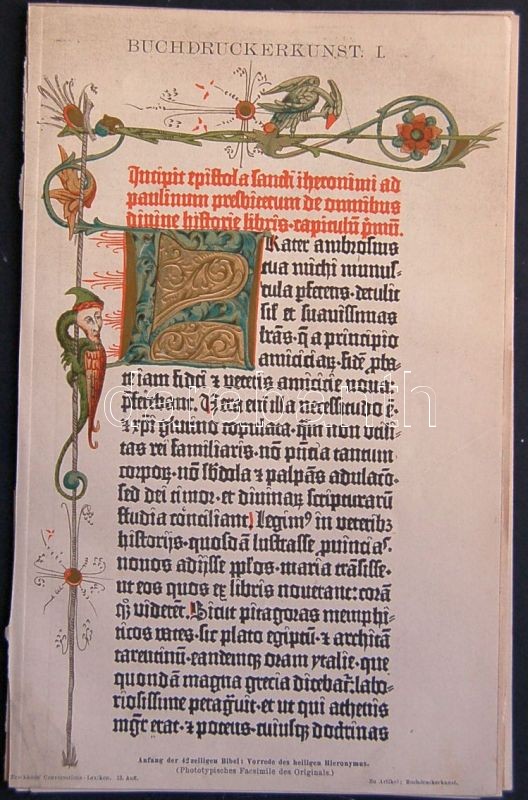 BUCHDRUCKERKUNST: I.
Incipit epistola sancti iheronimi ad
paulinum presbiterum de omnibus
divine historie libris·capitulū p̄mū.
Frater ambrosius
tua michi munus-
cula p̄ferens·detulit
sił et suavissimas
l̄ras·q̄ a principio
amiciciaꝝ·fidē p̄ba-
te iam fidei ⁊ veteris amicicie nova:
p̄ferebant. Uera eni̅ illa necessitudo ē·
⁊ xp̄i glutino copulata·q̄m non utili-
tas rei familiaris·nō p̄ncia tantum
corpoꝝ·nō sb̄dola ⁊ palpās adulacō·
sed dei timor·et divinaꝝ scripturarū
studia conciliant. Legim⁹ in veterib⁊
historijs·quosdā lustrasse p̄vincias·
novos adijsse pp̄los·maria trāsisse·
ut eos quos ex libris noverant: corā
q⁊ viderēt. Sicut pitagoras memphi-
ticos vates·sic plato egiptū·⁊ architā
tarentinū·eandemq⁊ oram ytalie·que
quondā magna grecia dicebat̄: labo-
riosissime peragrut·et ut qui athenis
mḡr erat·⁊ potens·cuiusq⁊ doctrinas
Anfang der 42zeiligen Bibel: Vorrede des heiligen Hieronymus.
(Phototypisches Facsimile des Originals.)
Brockhaus' Conversations-Lexikon. 13. Aufl.
Zu Artikel: Buchdruckerkunst.
darabanth